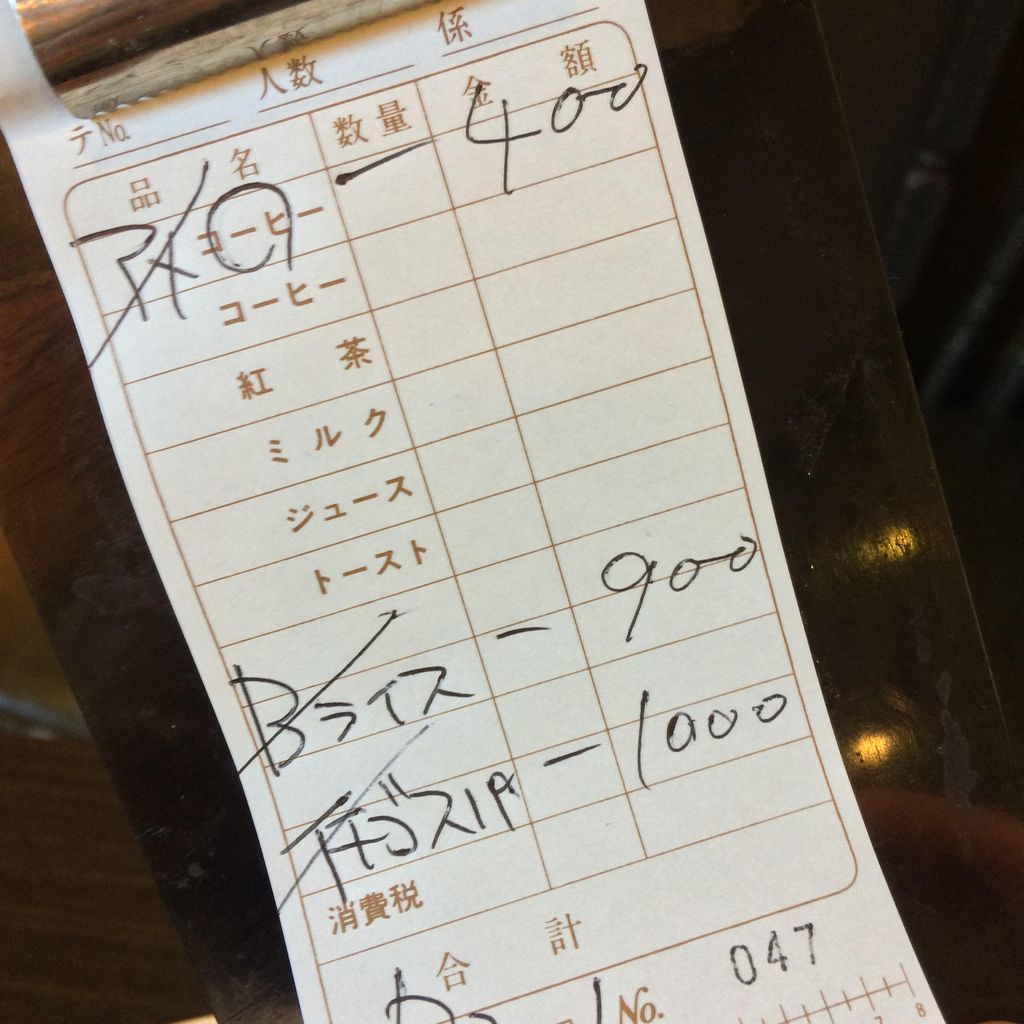 係
人数
テNo.
品名 数量 金額
コーヒー 一 400
コーヒー
紅茶
ミルク
ジュース
トースト
Bライス 一 900
一 1000
消費税
合計
No. 047
7 8